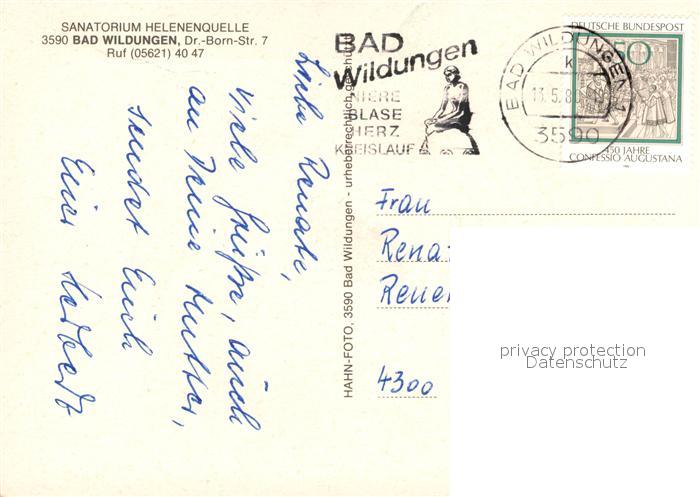 SANATORIUM HELENENQUELLE
3590 BAD WILDUNGEN, Dr.-Born-Str. 7
Ruf (05621) 40 47
Liebe Renate,
viele Grüße, auch
an Deine Mutter,
sendet Euch
Euer
HAHN-FOTO, 3590 Bad Wildungen - urheberrechtlich geschützt
BAD
Wildungen
NIERE
BLASE
HERZ
KREISLAUF
BAD WILDUNGEN 1
k
13.5.8
3590
DEUTSCHE BUNDESPOST
50
450 JAHRE
CONFESSIO AUGUSTANA
Frau
Rena
4300
privacy protection
Datenschutz